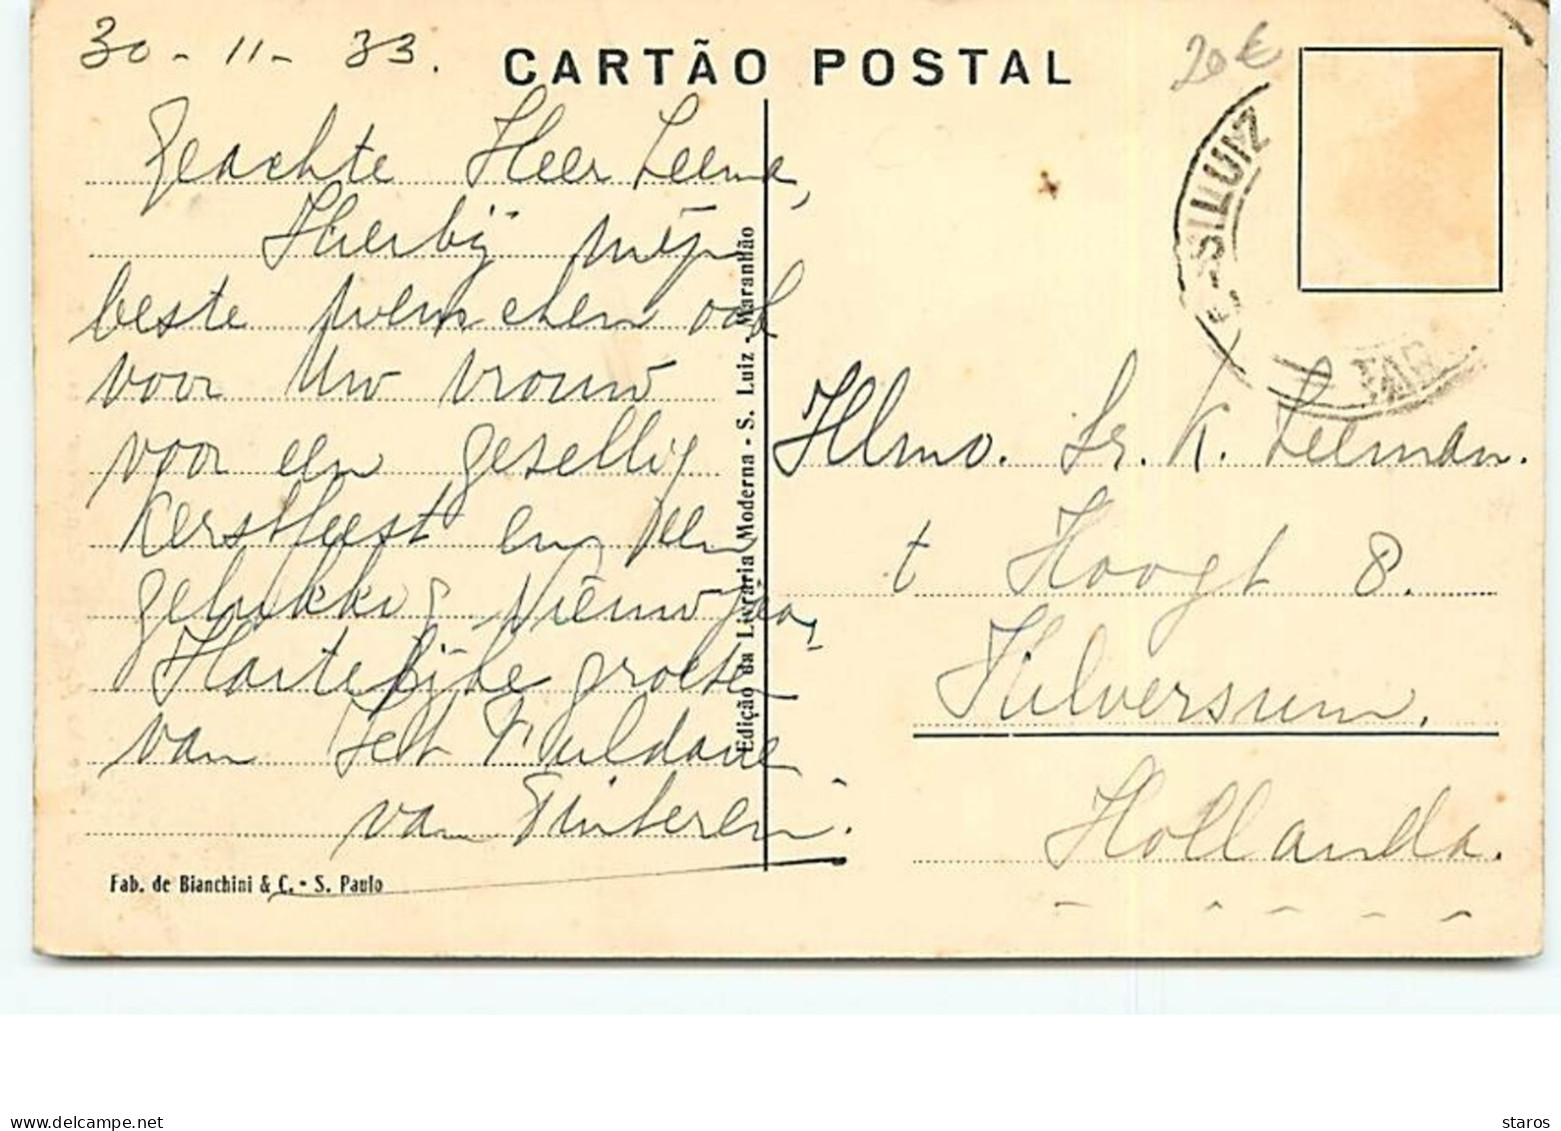 30-11-33.
CARTÃO POSTAL
20€
Geachte Heer Leema,
Hierbij mijn
beste wenschen ook
voor Uw vrouw
voor een gezellig
Kerstfeest en een
gelukkig Nieuwjaar
Hartelijke groeten
van Jett
van
Edição da Livraria Moderna - S. Luiz - Maranhão
Fab. de Bianchini & C. - S. Paulo
S. LUIZ
MAR
Illmo. Sr. K. Leeman.
t Hoogt 8.
Hilversum.
Hollanda.
delcampe.net
staros